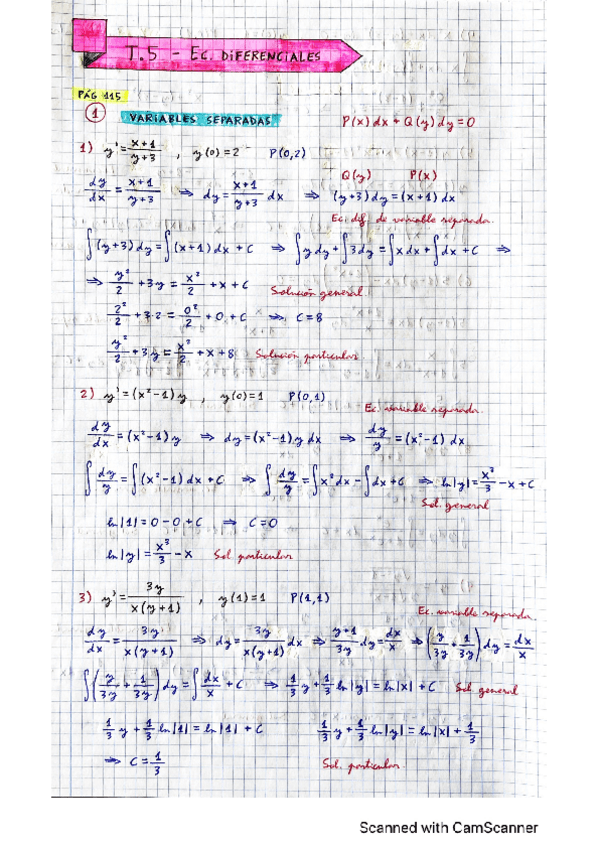 T.5 - Ec. DiFERENCiALES
PÁG 115
1 VARiABLES SEPARADAS P(x) dx + Q(y) dy = 0
1) y' = (x+1)/(y+3) , y(0) = 2 P(0,2)
Q(y) P(x)
dy/dx = (x+1)/(y+3) ⇒ dy = (x+1)/(y+3) dx ⇒ (y+3) dy = (x+1) dx
Ec. dif. de variable separada.
∫(y+3) dy = ∫(x+1) dx + C ⇒ ∫y dy + ∫3 dy = ∫x dx + ∫dx + C ⇒
⇒ y²/2 + 3y = x²/2 + x + C Solución general
2²/2 + 3·2 = 0²/2 + 0 + C ⇒ C = 8
y²/2 + 3y = x²/2 + x + 8 Solución particular
2) y' = (x²-1) y , y(0) = 1 P(0,1)
Ec. variable separada.
dy/dx = (x²-1) y ⇒ dy = (x²-1) y dx ⇒ dy/y = (x²-1) dx
∫dy/y = ∫(x²-1) dx + C ⇒ ∫dy/y = ∫x² dx - ∫dx + C ⇒ ln|y| = x³/3 - x + C
Sol. general
ln|1| = 0 - 0 + C ⇒ C = 0
ln|y| = x³/3 - x Sol particular
3) y' = 3y/(x(y+1)) , y(1) = 1 P(1,1)
Ec. variable separada.
dy/dx = 3y/(x(y+1)) ⇒ dy = 3y/(x(y+1)) dx ⇒ (y+1)/3y dy = dx/x ⇒ (y/3y + 1/3y) dy = dx/x
∫(y/3y + 1/3y) dy = ∫dx/x + C ⇒ 1/3 y + 1/3 ln|y| = ln|x| + C Sol general
1/3 y + 1/3 ln|1| = ln|1| + C 1/3 y + 1/3 ln|y| = ln|x| + 1/3
⇒ C = 1/3 Sol. particular
Scanned with CamScanner